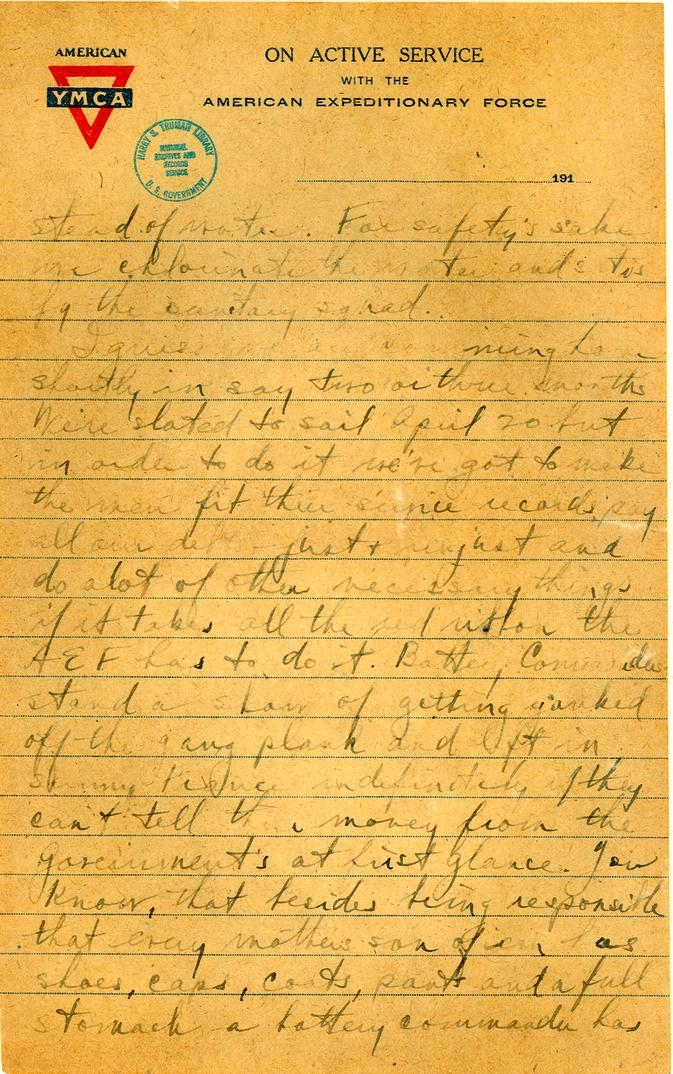 AMERICAN
YMCA
ON ACTIVE SERVICE
WITH THE
AMERICAN EXPEDITIONARY FORCE
HARRY S. TRUMAN LIBRARY
NATIONAL
ARCHIVES AND
RECORDS
SERVICE
U. S. GOVERNMENT
191
stead of water. For safety's sake
we chlorinate the water and
by the sanitary squad.
I guess we are
shortly in say two or three months
We're slated to sail April 20 but
in order to do it we've got to make
the men fit their service records, pay
all our debts just & unjust and
do a lot of other necessary things
if it takes all the red ribbon the
AEF has to do it. Battery Commanders
stand a show of getting yanked
off the gang plank and left in
sunny France indefinitely if they
can't tell their money from the
Government's at first glance. You
know, that besides being responsible
that every mothers son of em has
shoes, caps, coats, pants and a full
stomach a battery commander has